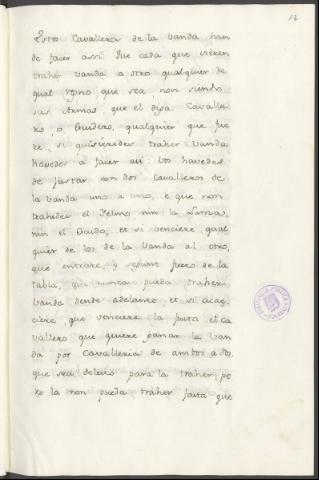 12
Estos Cavalleros de la vanda han
de facer assi: Que cada que vieren
traher vanda a otro qualquier de
qual regno que sea non siendo
sus Armas que el diga Cavalle-
ro, o Escudero, qualquier que fue
re, si quisieredes traher vanda
havedes a facer assi: Vos havedes
de justar con dos Cavalleros de
la vanda uno a uno, e que non
trahedes el Yelmo, nin la Lanza,
nin el Escudo, et si venciere qual
quier de los de la vanda al otro,
que entrare, y segunt fuero de la
tabla, que nunca pueda traher
vanda dende adelante, et si acae-
ciere, que venciere la justa el Ca
vallero que quiere ganar la van
da por Cavalleria de ambos a dos,
que sea delivro para la traher, pe
ro la non pueda traher fasta que